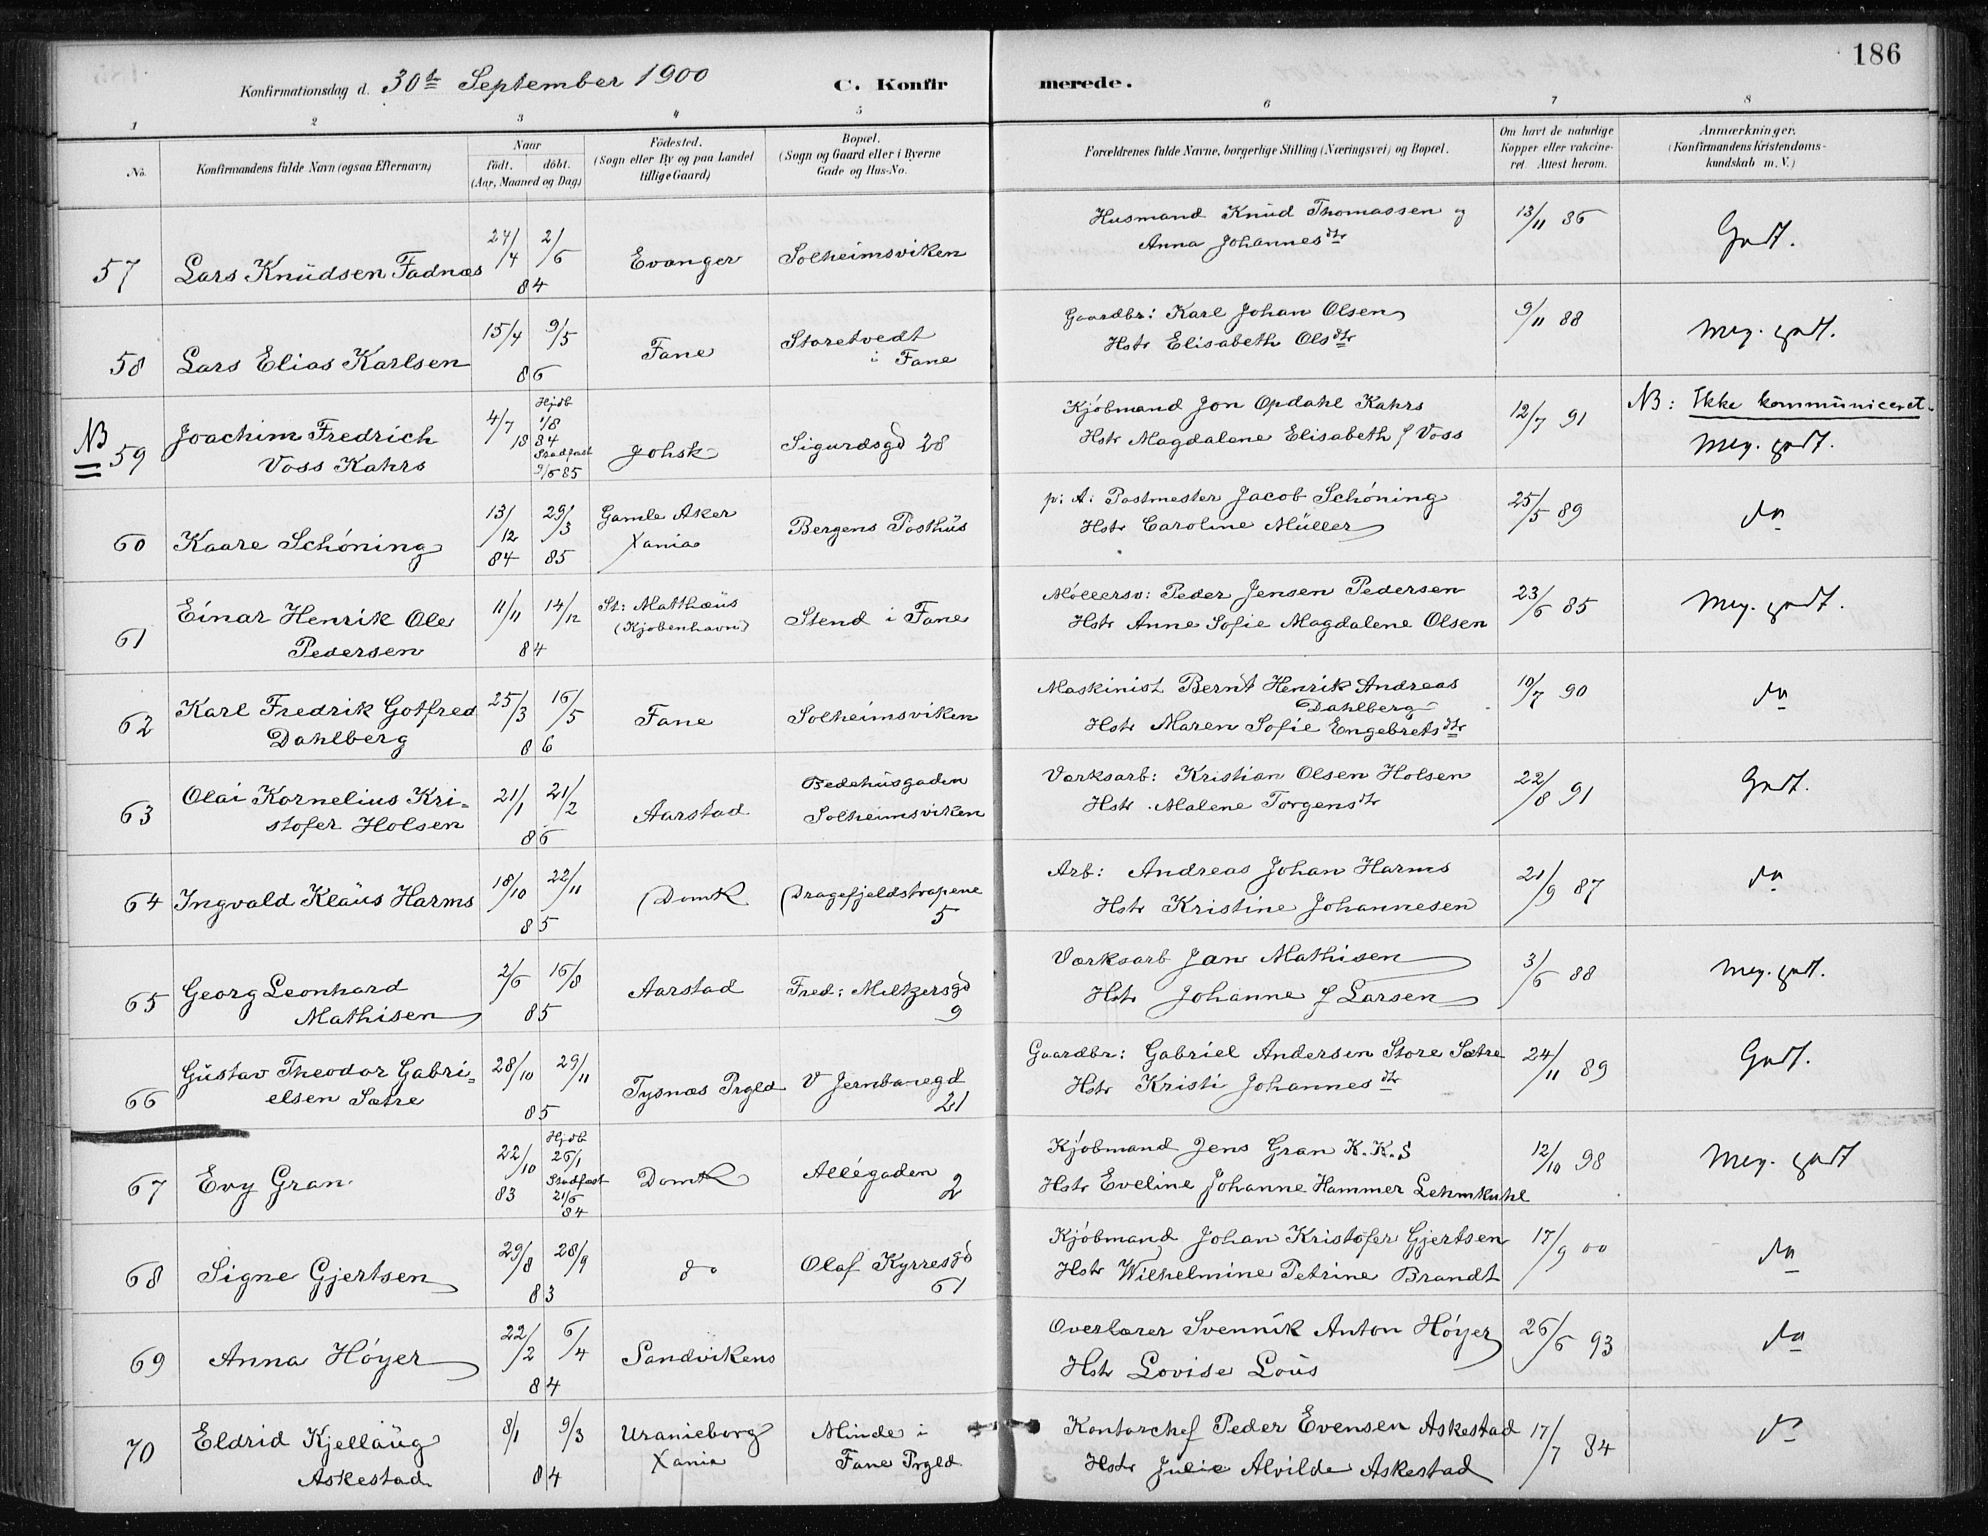 186
Konfirmationsdag d. 30te September 1900 C. Konfirmerede.
1 2 3 4 5 6 7 8
No. Konfirmandens fulde Navn (ogsaa Efternavn) Naar født. døbt. (Aar, Maaned og Dag) Fødested. (Sogn eller By og paa Landet tillige Gaard) Bopæl. (Sogn og Gaard eller i Byerne Gade og Hus-No. Forældrenes fulde Navne, borgerlige Stilling (Næringsvei) og Bopæl. Om havt de naturlige Kopper eller vakcineret. Attest herom. Anmærkninger. (Konfirmandens Kristendomskundskab m. V.)
57 Lars Knudsen Fadnæs 24/4 2/6 84 Evanger Solheimsviken Husmand Knud Thomassen og
Anna Johannesdtr 13/11 86 Godt.
58 Lars Elias Karlsen 15/4 9/5 86 Fane Storetvedt i Fane Gaardbr: Karl Johan Olsen
Hstr Elisabeth Olsdtr 9/11 88 Meg. godt.
NB 59 Joachim Fredrich
Voss Kahrs 4/7 1884 Hjdb 1/8 Stadfæst 9/6 85 Johsk Sigurdsgd 28 Kjøbmand Jon Opdahl Kahrs
Hstr Magdalene Elisabeth f Voss 12/7 91 NB: Ikke kommuniceret.
Meg. godt.
60 Kaare Schøning 13/12 84 29/3 85 Gamle Aker
Xania Bergens Posthus p: A: Postmester Jacob Schøning
Hstr Caroline Müller 25/5 89 do
61 Einar Henrik Ole
Pedersen 11/11 14/12 84 St: Matthæus
(Kjøbenhavn) Stend i Fane Møllersv: Peder Jensen Pedersen
Hstr Anne Sofie Magdalene Olsen 23/6 85 Meg. godt.
62 Karl Fredrik Gotfred
Dahlberg 25/3 16/5 86 Fane Solheimsviken Maskinist Bernt Henrik Andreas
Dahlberg
Hstr Maren Sofie Engebretsdtr 10/7 90 do
63 Olai Kornelius Kri-
stofer Holsen 21/1 21/2 86 Aarstad Bedehusgaden
Solheimsviken Værksarb: Kristian Olsen Holsen
Hstr Malene Torgensdtr 22/8 91 Godt.
64 Ingvald Klaus Harms 18/10 22/11 85 Domk Dragefjeldstrapene
5 Arb: Andreas Johan Harms
Hstr Kristine Johannesen 21/9 87 do
65 Georg Leonhard
Mathisen 2/6 16/8 85 Aarstad Fred: Meltzersgd
9 Værksarb Jan Mathisen
Hstr Johanne f Larsen 3/6 88 Meg. godt.
66 Gustav Theodor Gabri-
elsen Sætre 28/10 29/11 85 Tysnæs Prgld V Jernbanegd
21 Gaardbr: Gabriel Andersen Store Sætre
Hstr Kristi Johannesdtr 24/11 89 Godt.
67 Evy Gran 22/10 83 Hjdb 26/1 Stadfæst 21/6 84 Domk Allégaden
2 Kjøbmand Jens Gran K.K.S
Hstr Eveline Johanne Hammer Lehmkuhl 12/10 98 Meg. godt
68 Signe Gjertsen 29/8 28/9 83 do Olaf Kyrresgd
61 Kjøbmand Johan Kristofer Gjertsen
Hstr Wilhelmine Petrine Brandt 17/9 00 do
69 Anna Høyer 22/2 6/4 84 Sandvikens Overlærer Svennik Anton Høyer
Hstr Lovise Lous 26/6 93 do
70 Eldrid Kjellaug
Askestad 8/1 9/3 84 Uranieborg
Xania Minde i
Fane Prgld Kontorchef Peder Evensen Askestad
Hstr Julie Alvilde Askestad 17/7 84 do